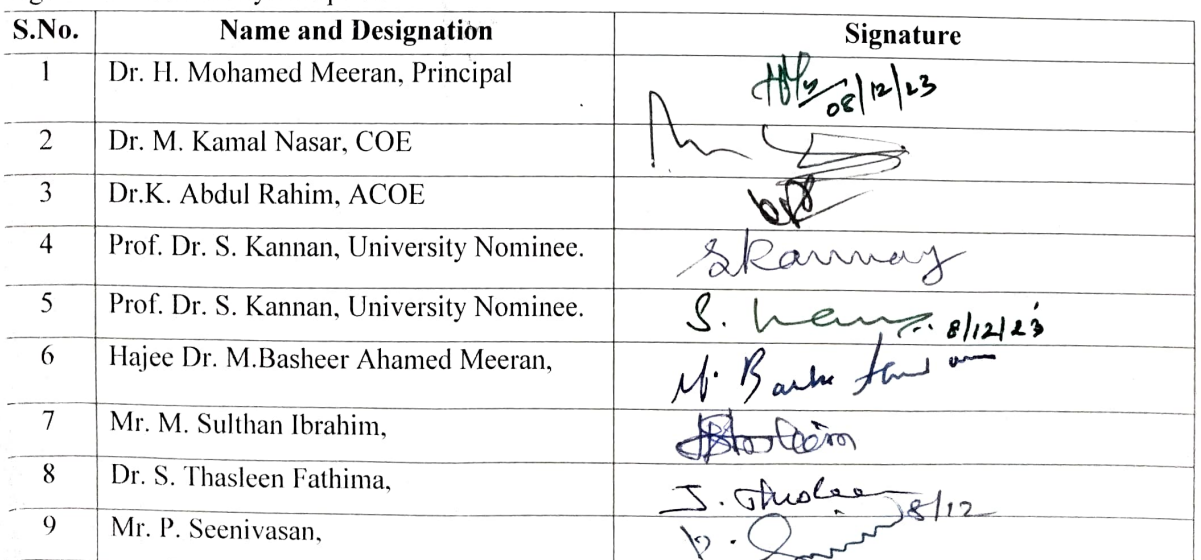 S.No. Name and Designation Signature
1 Dr. H. Mohamed Meeran, Principal 08/12/23
2 Dr. M. Kamal Nasar, COE
3 Dr.K. Abdul Rahim, ACOE
4 Prof. Dr. S. Kannan, University Nominee. SKannan
5 Prof. Dr. S. Kannan, University Nominee. S. 8/12/23
6 Hajee Dr. M.Basheer Ahamed Meeran, M.
7 Mr. M. Sulthan Ibrahim,
8 Dr. S. Thasleen Fathima, 8/12
9 Mr. P. Seenivasan, P.